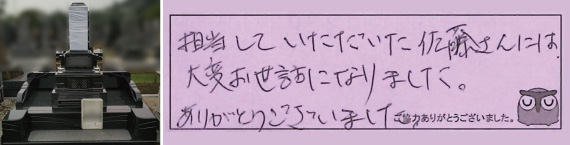 担当していただいた佐藤さんには、
大変お世話になりました。
ありがとうございました
ご協力ありがとうございました。